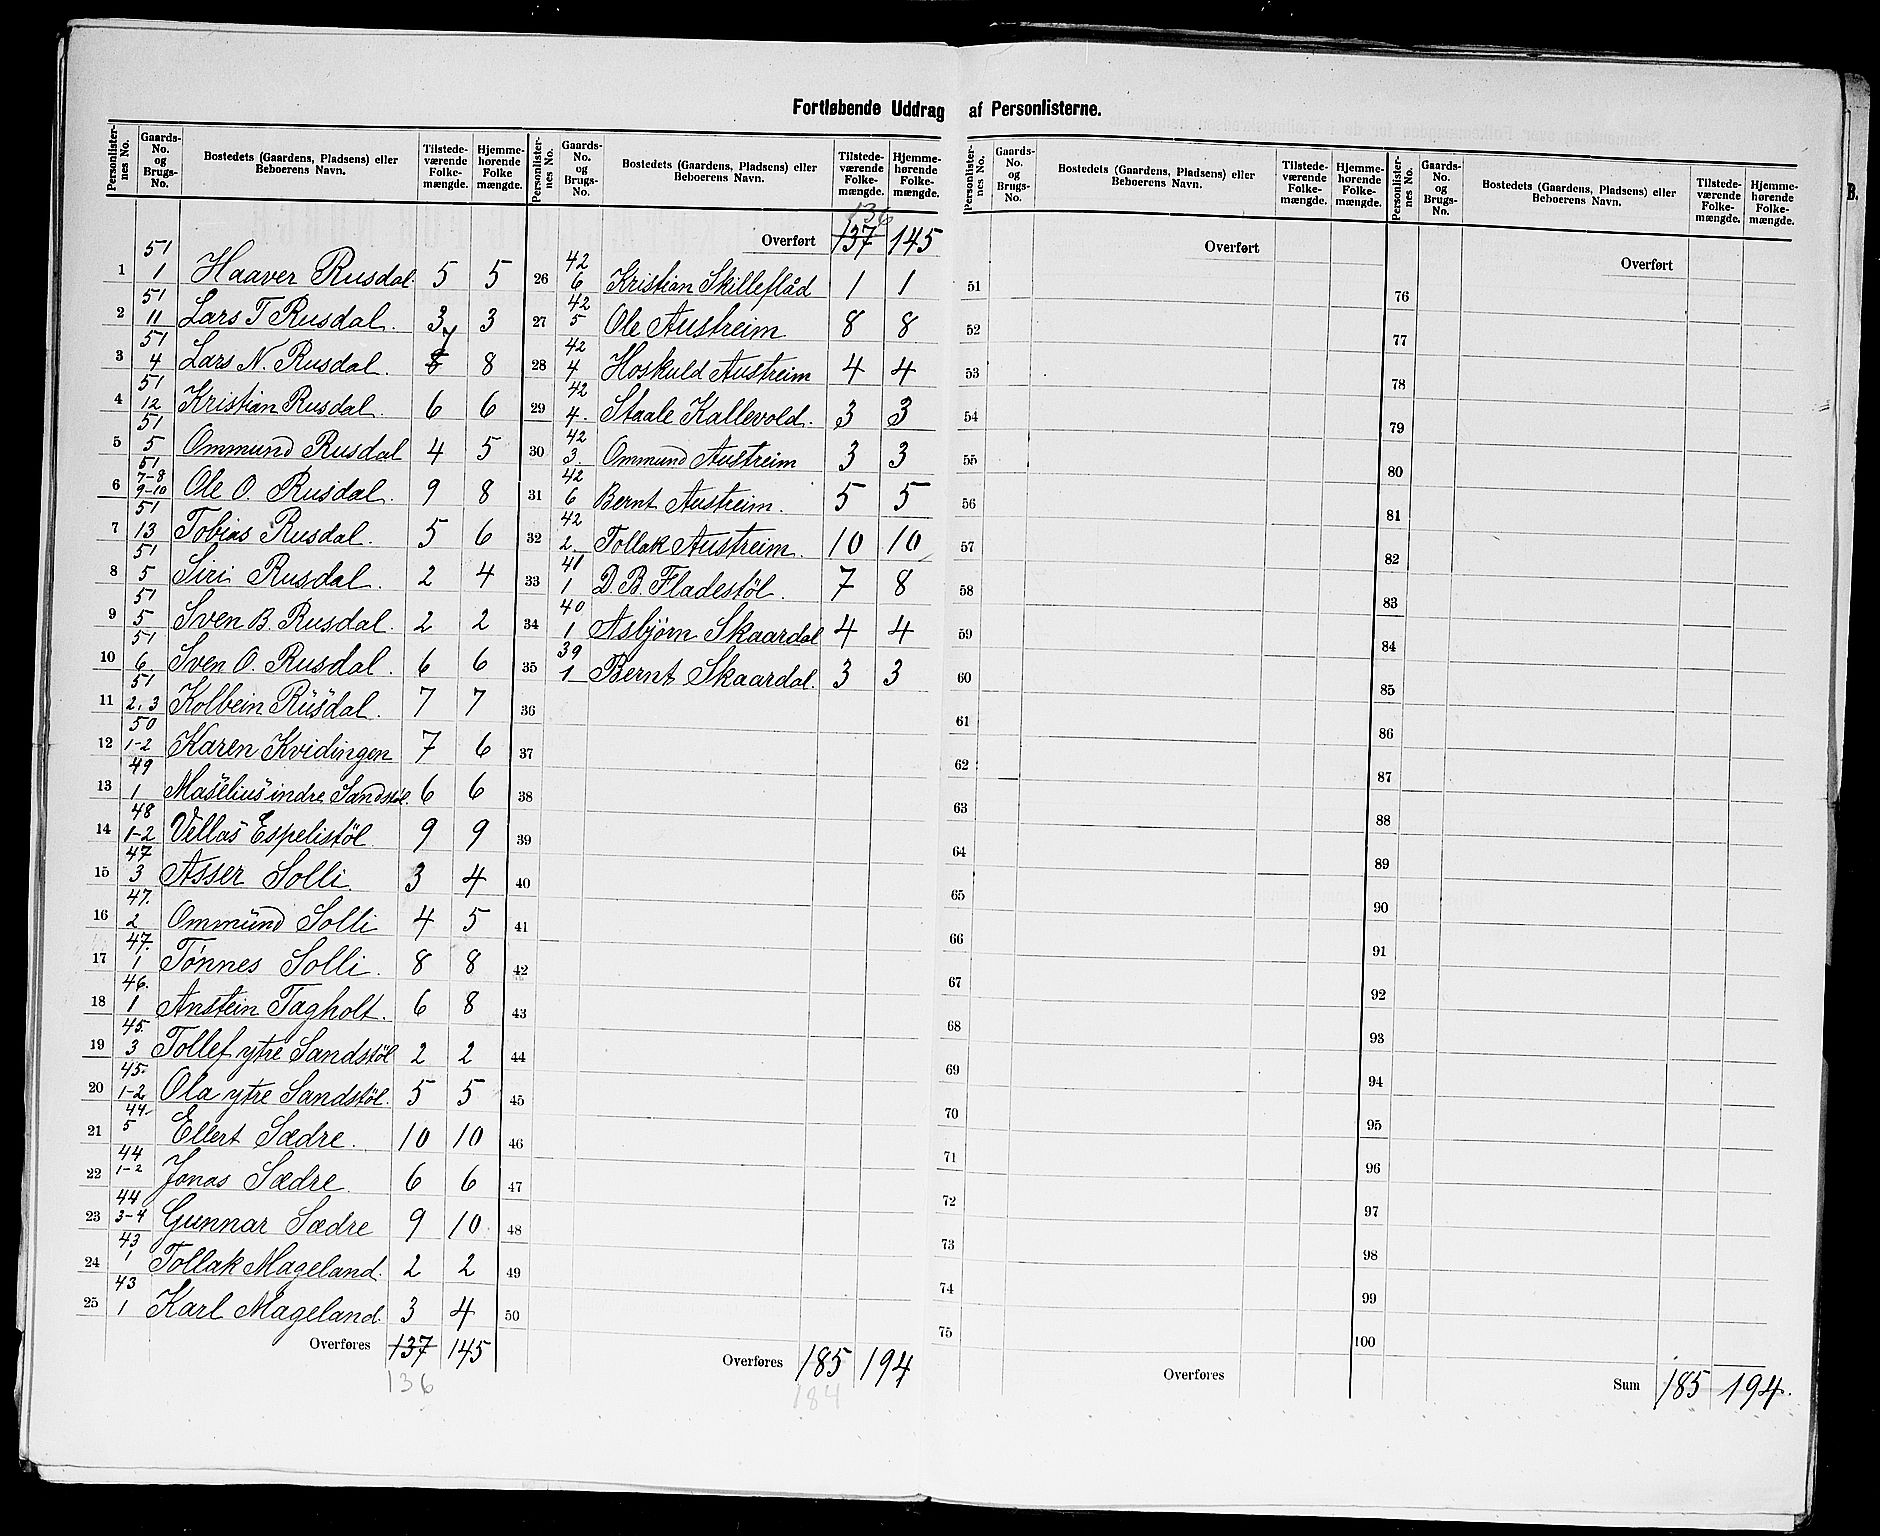 Fortløbende Uddrag af Personlisterne.
Personlisternes No. | Gaards-No. og Brugs-No. | Bostedets (Gaardens, Pladsens) eller Beboerens Navn. | Tilstedeværende Folkemængde. | Hjemmehørende Folkemængde.
1 51 1 Haaver Rusdal. 5 5
2 51 11 Lars T Rusdal. 3 3
3 51 4 Lars N. Rusdal. 8 7 8
4 51 12 Kristian Rusdal. 6 6
5 51 5 Ommund Rusdal 4 5
6 51 7-8 9-10 Ole O. Rusdal. 9 8
7 51 13 Tobias Rusdal. 5 6
8 51 5 Siri Rusdal. 2 4
9 51 5 Sven B. Rusdal. 2 2
10 51 6 Sven O. Rusdal. 6 6
11 51 2, 3 Kolbein Rusdal. 7 7
12 50 1-2 Karen Kvidingen 7 6
13 49 1 Maselius indre Sandstøl. 6 6
14 48 1-2 Vellas Espelistøl 9 9
15 47 3 Asser Solli. 3 4
16 47. 2 Ommund Solli 4 5
17 47. 1 Tønnes Solli. 8 8
18 46. 1 Anstein Tagholt. 6 8
19 45. 3 Tollef ytre Sandstøl 2 2
20 45. 1-2 Ola ytre Sandstøl. 5 5
21 44. 5 Ellert Sædre. 10 10
22 44 1-2 Jonas Sædre. 6 6
23 44 3-4 Gunnar Sædre 9 10.
24 43 1 Tollak Mageland. 2 2
25 43 1 Karl Mageland. 3 4
Overføres 137 145
136
Personlisternes No. | Gaards-No. og Brugs-No. | Bostedets (Gaardens, Pladsens) eller Beboerens Navn. | Tilstedeværende Folkemængde. | Hjemmehørende Folkemængde.
136
Overført 137 145
26 42 6 Kristian Skilleflåd 1 1
27 42 5 Ole Austreim 8 8
28 42 4 Hoskuld Austreim 4 4
29 42 4. Staale Kallevold. 3 3
30 42 3. Ommund Austreim 3 3
31 42 6 Bernt Austreim. 5 5
32 42 2. Tollak Austreim. 10 10
33 41 1 D. B. Fladestøl. 7 8
34 40 1 Asbjørn Skaardal 4 4
35 39 1 Bernt Skaardal. 3 3
36
37
38
39
40
41
42
43
44
45
46
47
48
49
50
Overføres 185 194
184
Personlisternes No. | Gaards-No. og Brugs-No. | Bostedets (Gaardens, Pladsens) eller Beboerens Navn. | Tilstedeværende Folkemængde. | Hjemmehørende Folkemængde.
Overført
51
52
53
54
55
56
57
58
59
60
61
62
63
64
65
66
67
68
69
70
71
72
73
74
75
Overføres
Personlisternes No. | Gaards-No. og Brugs-No. | Bostedets (Gaardens, Pladsens) eller Beboerens Navn. | Tilstedeværende Folkemængde. | Hjemmehørende Folkemængde.
Overført
76
77
78
79
80
81
82
83
84
85
86
87
88
89
90
91
92
93
94
95
96
97
98
99
100
Sum 185 194.
B.